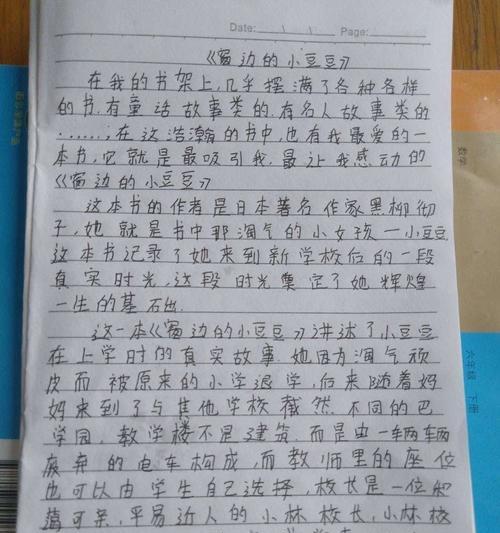 Date: \ \ Page:
《窗边的小豆豆》
在我的书架上,几乎摆满了各种各样
的书.有童话故事类的.有名人故事类的
......;在这浩瀚的书中,也有我最爱的一
本书,它就是最吸引我.最让我感动的
《窗边的小豆豆》
这本书的作者是日本著名作家黑柳彻
子,她就是书中那淘气的小女孩—小豆豆
这本书记录了她来到新学校后的一段
真实时光,这段时光奠定了她辉煌
一生的基石出.
这一本《窗边的小豆豆》讲述了小豆豆
在上学时的真实故事.她因为淘气顽
皮而被原来的小学退学,后来随着妈
妈来到了与其他学校截然不同的巴
学园,教学楼不是建筑.而是由一辆辆
废弃的电车构成,而教师里的座位
也可以由学生自己选择,校长是一位和
蔼可亲,平易近人的小林校长,小林校
数学
六年级 下册